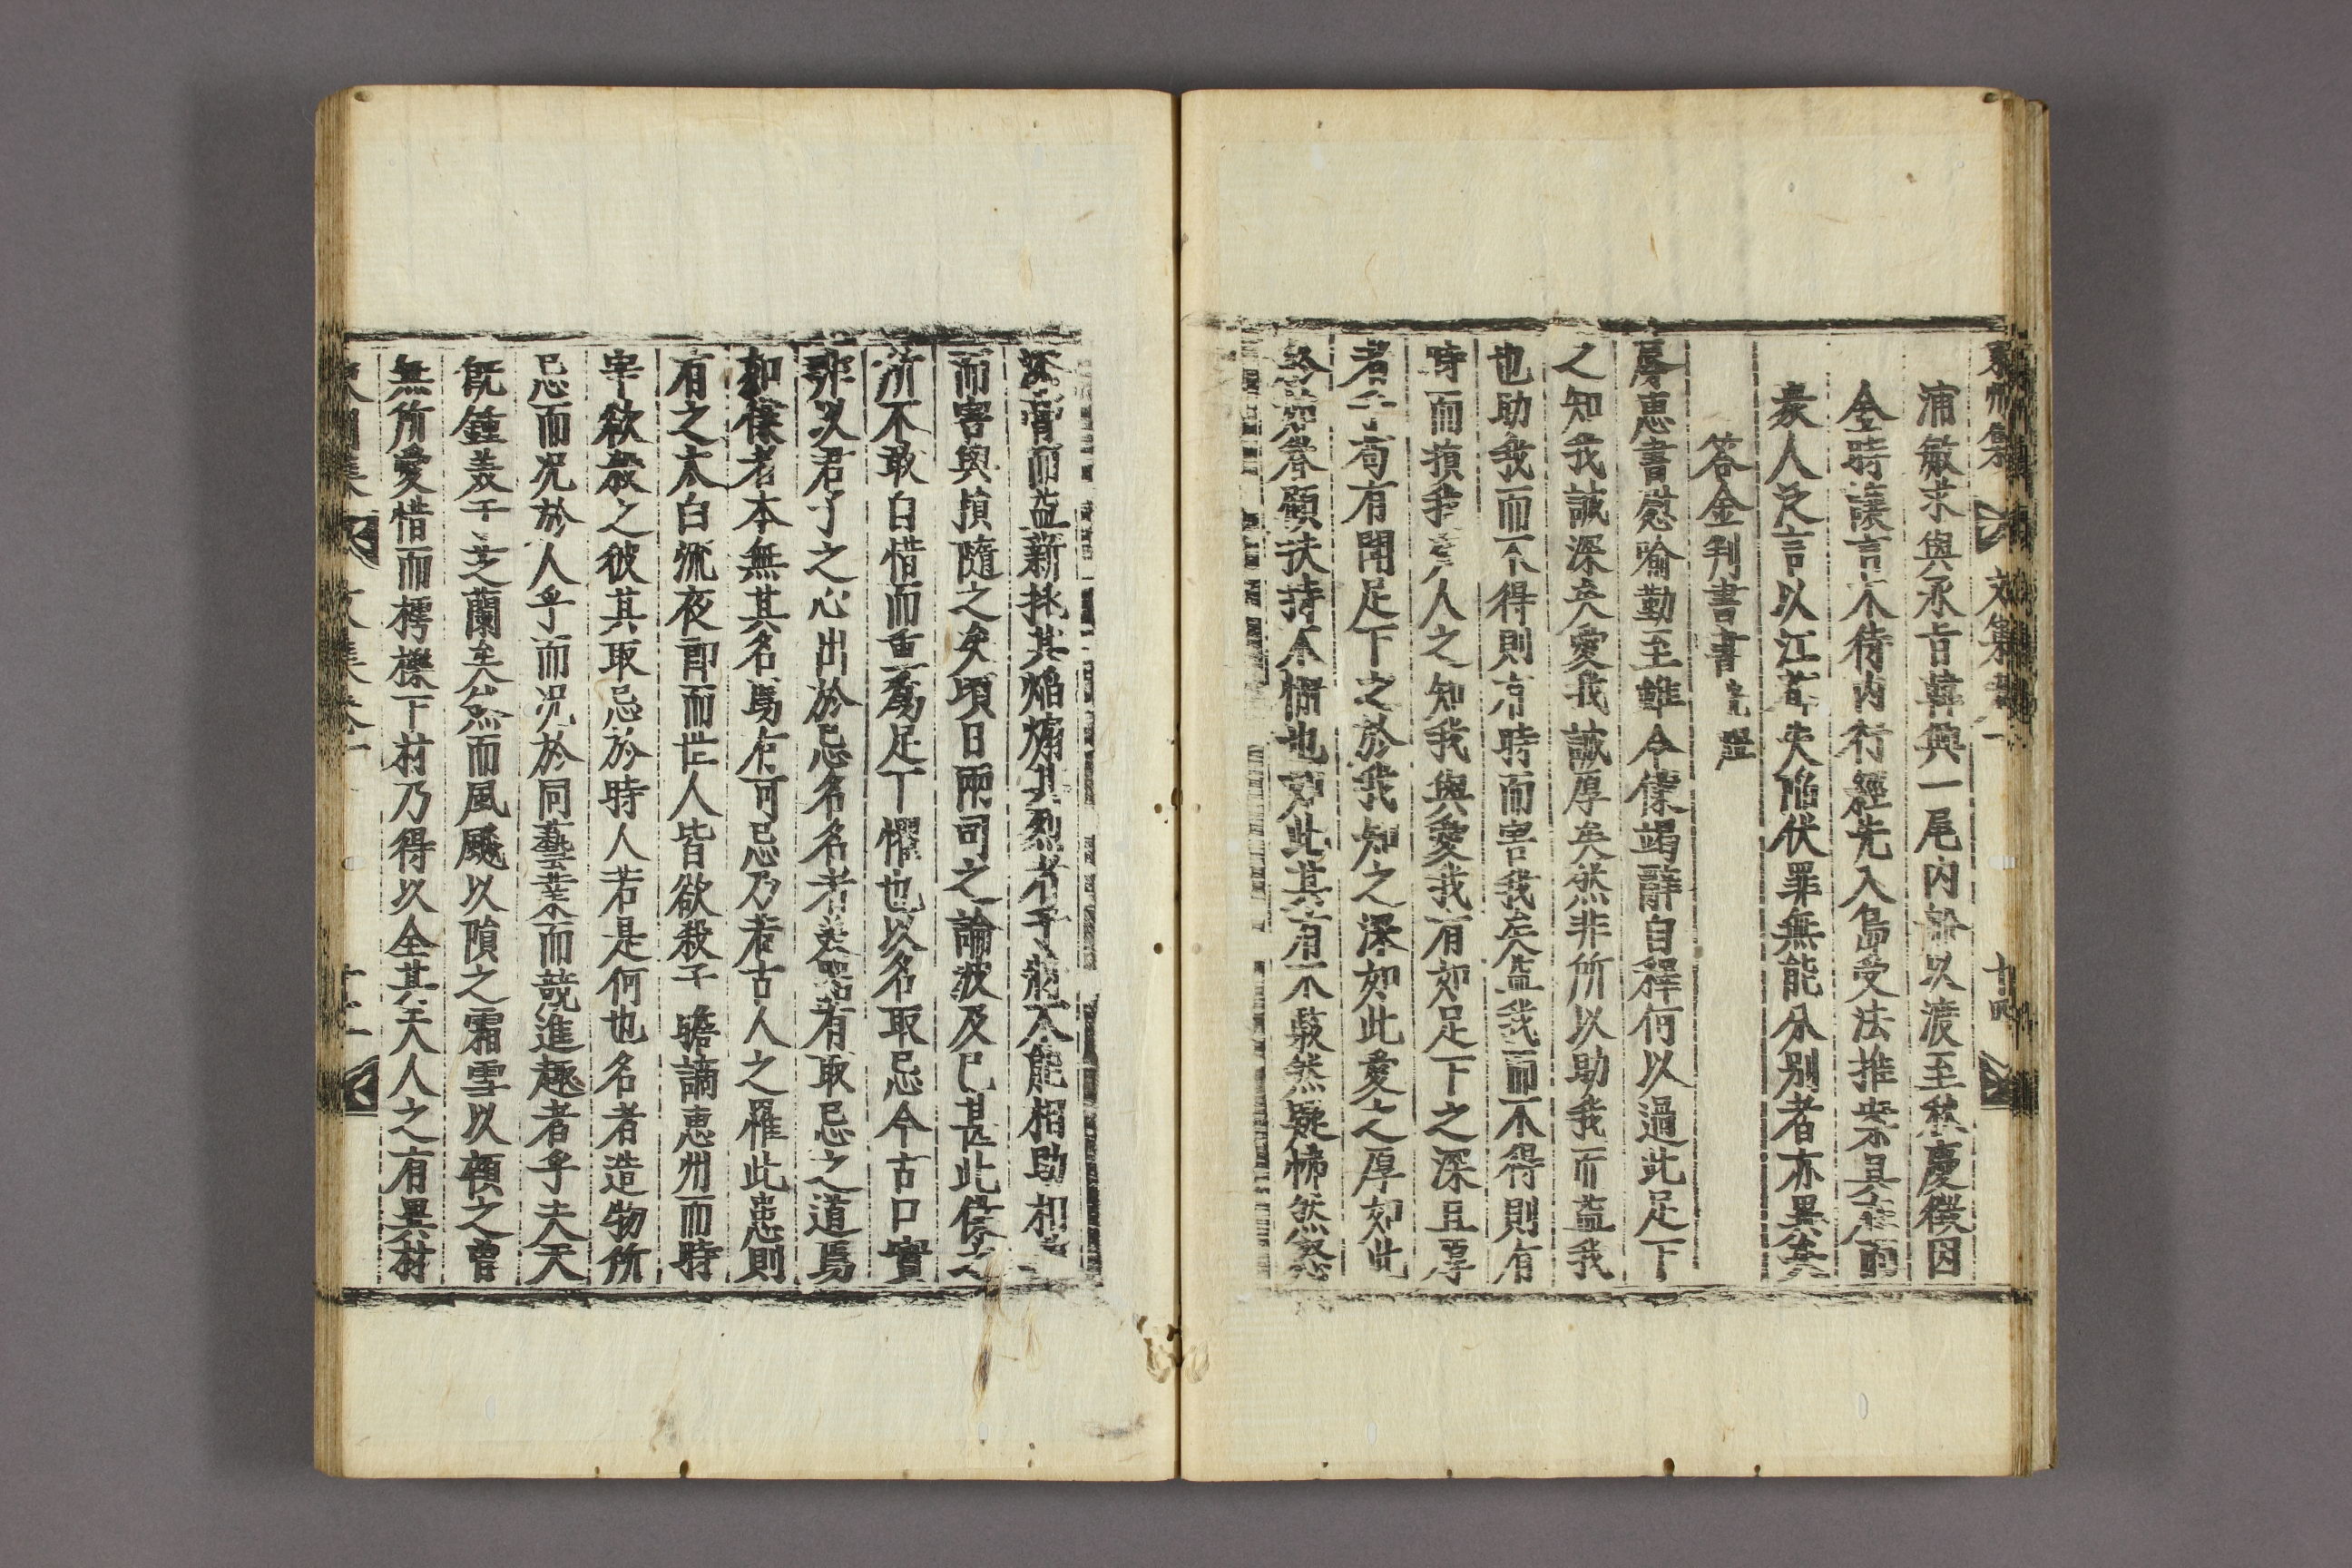 東州集 文集卷一 十四
浦敏求與承旨韓興一尾內船以渡至愁慶僕因
金時讓言不待內行經先入島受法推案具在而
衆人泛言以江華失陷伏罪無能分別者亦異矣
答金判書書 堉
辱惠書慰喻勤至雖令僕竭辭自釋何以過此足下
之知我誠深矣愛我誠厚矣然非所以助我而益我
也助我而不得則有時而害我矣益我而不得則有
時而損我矣人之知我與愛我有如足下之深且厚
者乎苟有聞足下之於我知之深如此愛之厚如此
眷顧扶持不懈也如此其有不駭然疑怫然怒
深膏而益薪挑其焰煽其烈者乎寵不能相助相益
而害與損隨之矣頃日兩司之論波及已甚此僕之
所不敢自惜而重爲足下懼也以名取忌今古口實
非以君子之心出於忌名名者美器有取忌之道焉
如僕者本無其名焉有可忌乃若古人之罹此患則
有之太白流夜郎而世人皆欲殺子瞻謫惠州而時
宰欲殺之彼其取忌於時人若是何也名者造物所
忌而况於人乎而况於同藝業而競進趣者乎夫天
旣鍾美于芝蘭矣然而風飈以隕之霜雪以顇之曾
無所愛惜而樗櫟下材乃得以全其天人之有異材
集 文集卷一